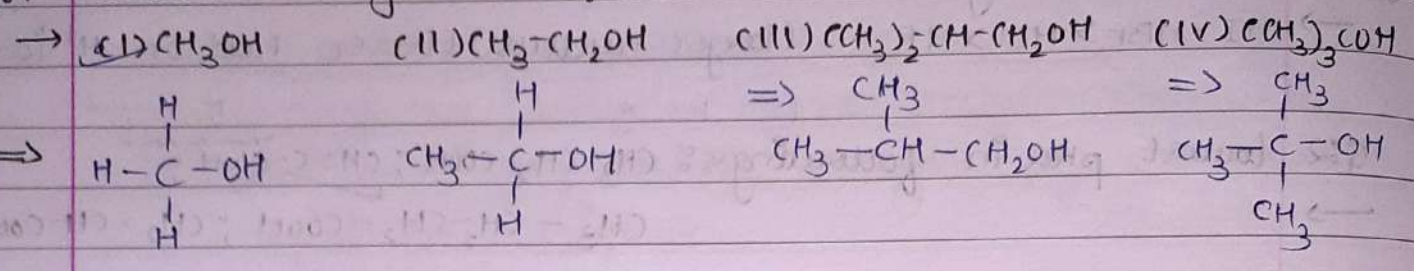 → (I) CH3OH (II) CH3-CH2OH (III) (CH3)2-CH-CH2OH (IV) (CH3)3COH
H H => CH3 => CH3
=> H-C-OH CH3-C-OH CH3-CH-CH2OH CH3-C-OH
H H CH3